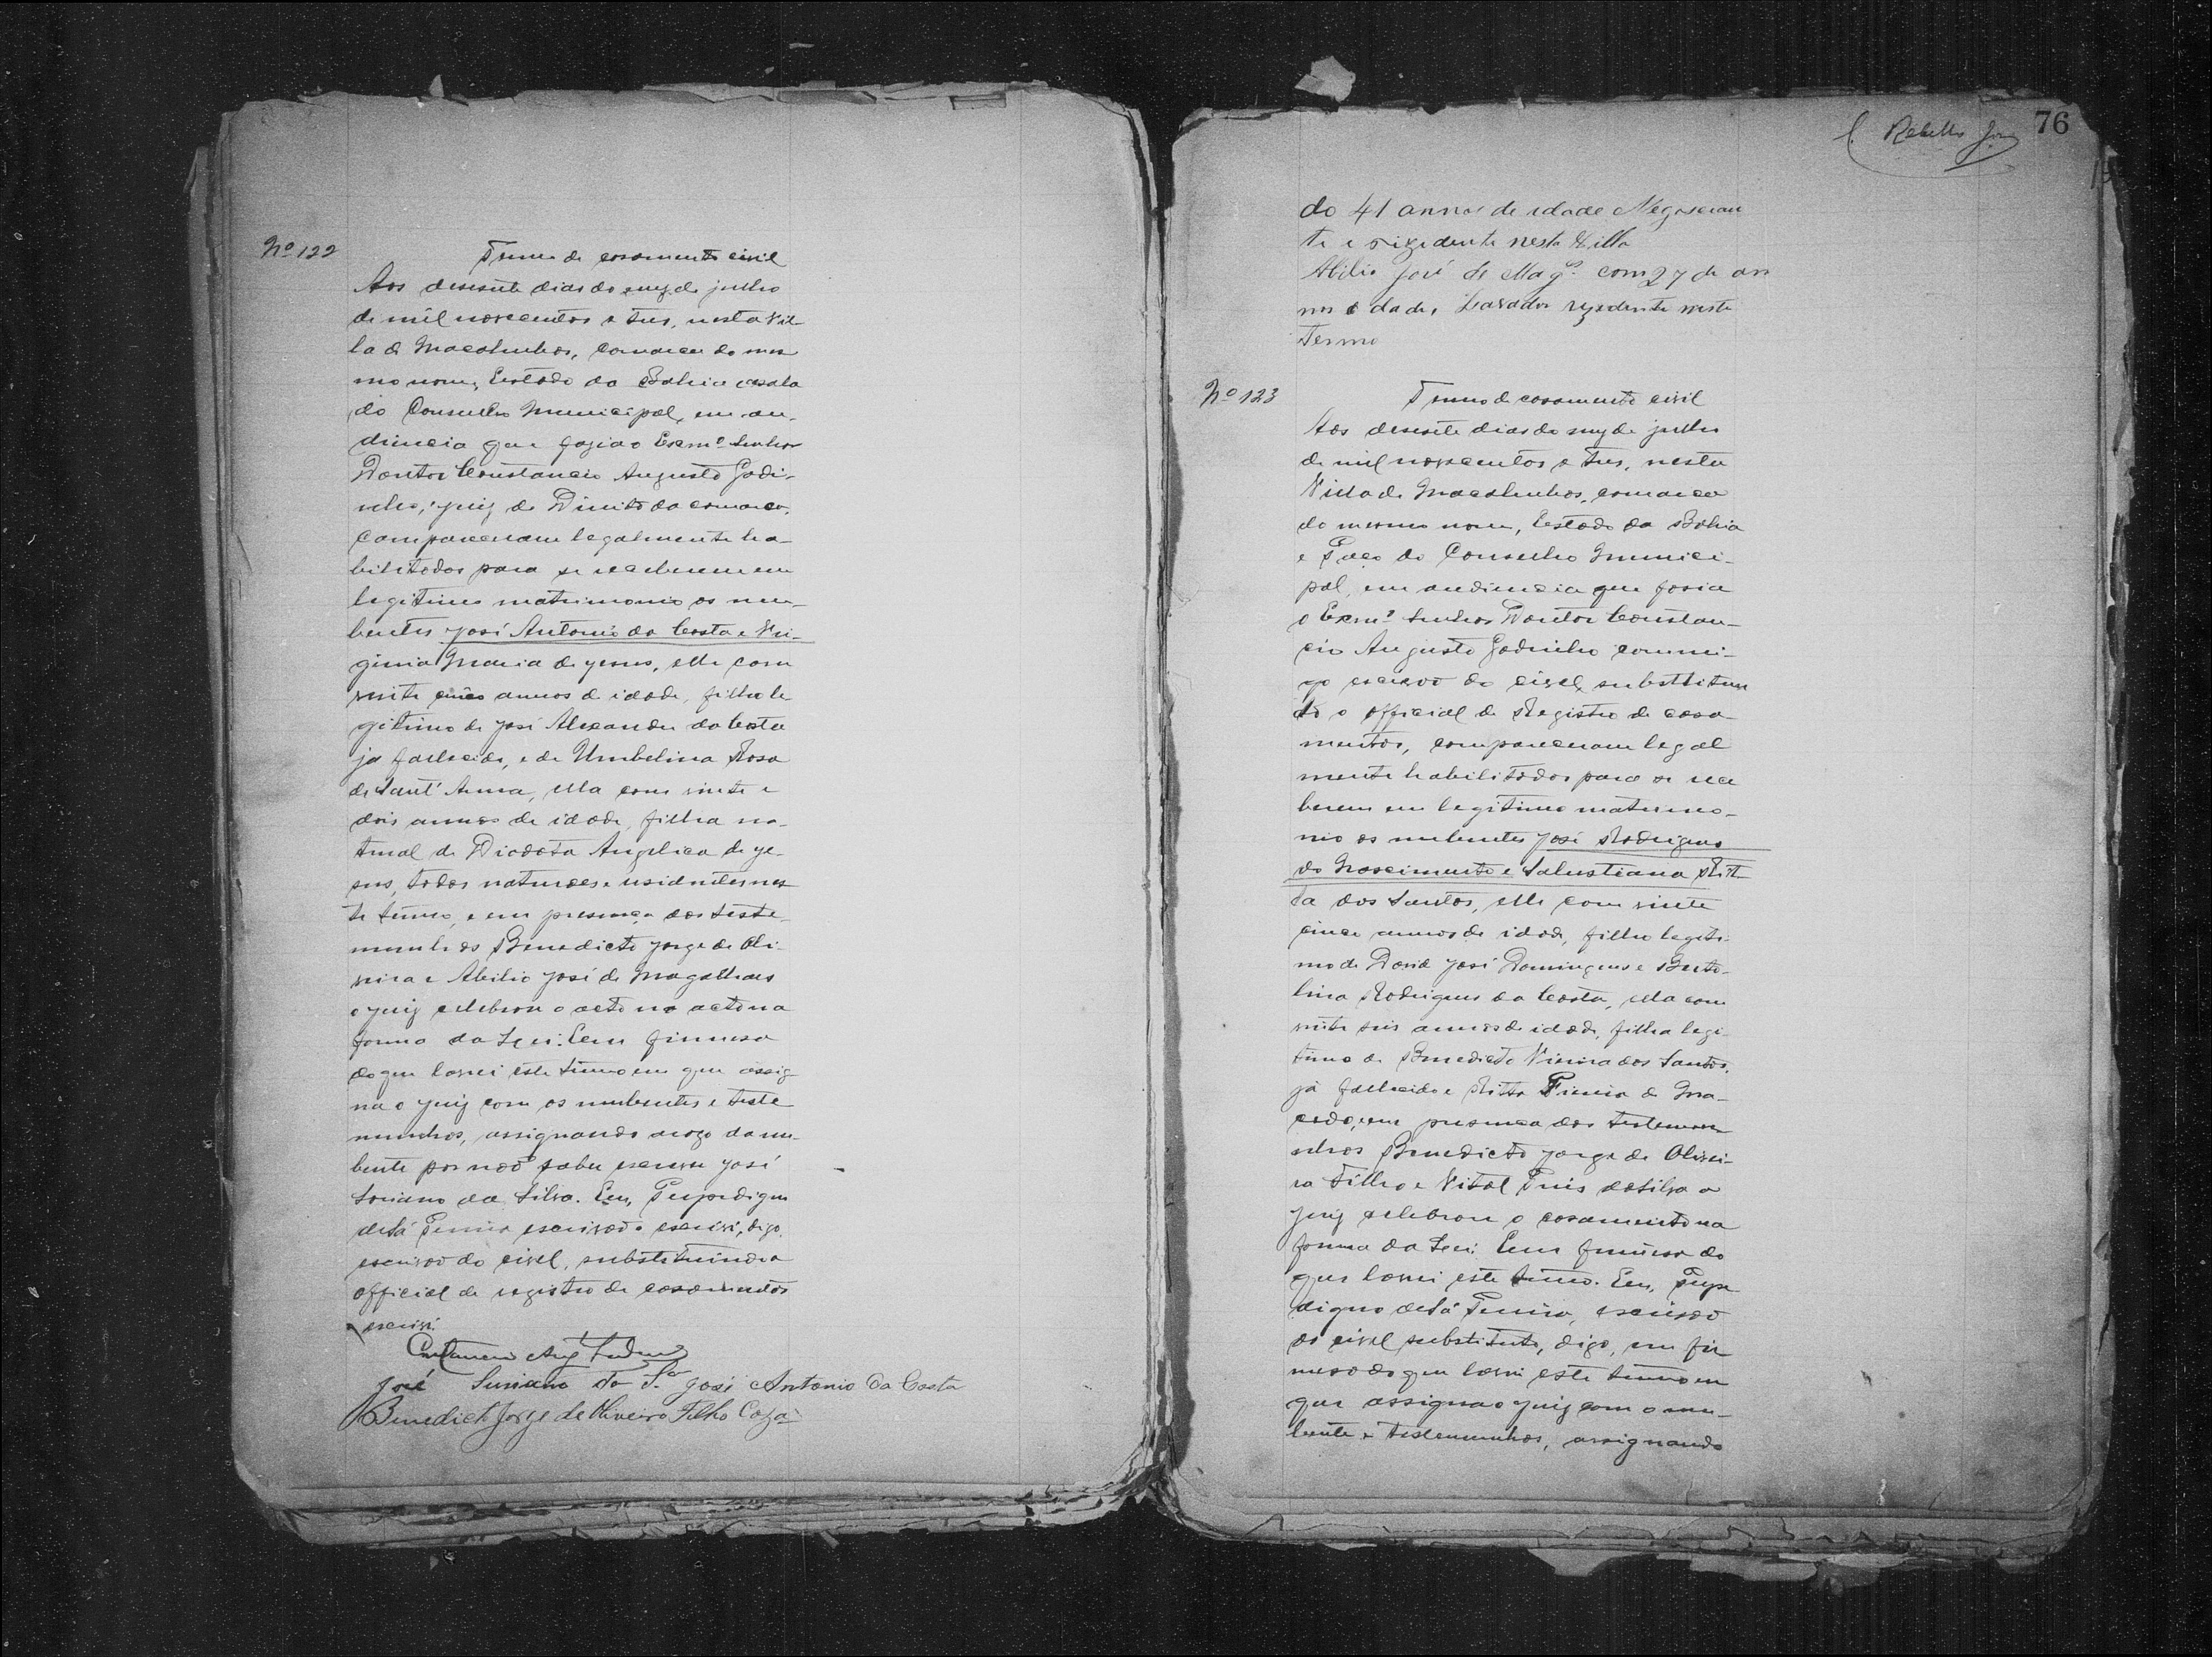 Nº 122
Termo de casamento civil
Aos desesete dias do mez de julho
de mil novecentos e tres, nesta Vil-
la de Macahubas, comarca do mes
mo nome, Estado da Bahia e sala
do Conselho Municipal, em au-
diencia que fazia o Exmº Senhor
Doutor Constancio Augusto Godi-
nho, juiz de Direito da comarca,
compareceram legalmente ha-
bilitados para se receberem em
legitimo matrimonio os nu-
bentes José Antonio da Costa e Vir-
ginia Maria de Jesus, elle com
vinte cinco annos de idade, filho le
gitimo de José Alexandre da Costa
já fallecido, e de Umbelina Rosa
de Sant' Anna, ella com vinte e
dois annos de idade, filha na-
tural de Diodata Angelica de Je-
sus, todos naturaes e residentes nes
te termo, e em presença das teste-
munhas Benedicto Jorge de Oli-
veira e Abilio José de Magalhaes
o juiz celebrou o acto na acto na
forma da Lei. E em firmesa
do que lavrei este termo em que assig-
na o juiz com os nubentes e teste
munhas, assignando arogo da nu-
bente por não saber escrever José
Soriano da Silva. Eu,
de Sá escrivão o escrivi, digo,
escrivão do civel, substituindo o
official de registro de casamentos
escrivi.
José Suriano da Sª José Antonio da Costa
Benedicto Jorge de Oliveira Filho
76
do 41 annos de idade Negosian
te e rizedente nesta Villa
Abilio José de Magᵉˢ com 27 de an
nos e dade, Lavador rezedente neste
Termo
Nº 123
Termo de casamento civil
Aos desesete dias do mez de julho
de mil novecentos e tres, nesta
Villa de Macahubas, comarca
do mesmo nome, Estado da Bahia
e Paço do Conselho Munici-
pal, em audiencia que fasia
o Exmº Senhor Doutor Constan-
cio Augusto Godinho commi-
go escrivão do civel, substituin
do o official de Registro de casa-
mentos, compareceram legal
mente habilitados para se rece
berem em legitimo matrimo-
nio os nubentes José Rodrigues
do Nascimento e Salustiana Rit
ta dos Santos, elle com vinte
cinco annos de idade, filho legiti-
mo de David José Domingues e Berto-
lina Rodrigues da Costa, ella com
vinte seis annos de idade, filha legi-
tima de Benedicto Vieira dos Santos,
já fallecido e Ritta de Ma-
cedo, em presença das testemu
nhas Benedicto Jorge de Olivei-
ra Filho e Vital da Silva o
juiz celebrou o casamento na
forma da Lei. E em firmesa do
que lavrei este termo. Eu,
de Sá escrivão
do civel substituto, digo, em fir
mesa do que lavrei este termo em
que assigna o juiz com o nu-
bente e testemunhas, assignando